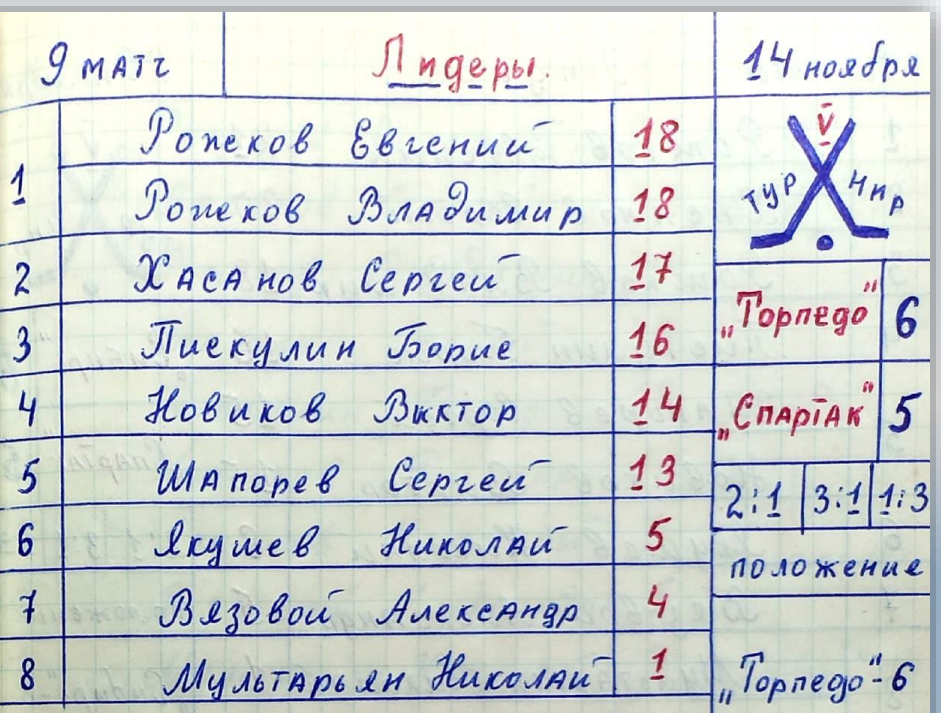 9 матч
Лидеры.
14 ноября
1
Рожков Евгений 18
Рожков Владимир 18
2 Хасанов Сергей 17
3 Пискулин Борис 16
4 Новиков Виктор 14
5 Шапорев Сергей 13
6 Якушев Николай 5
7 Вязовой Александр 4
8 Мультарьян Николай 1
V
Турнир
„Торпедо" 6
„Спартак" 5
2:1 3:1 1:3
положение
„Торпедо"-6